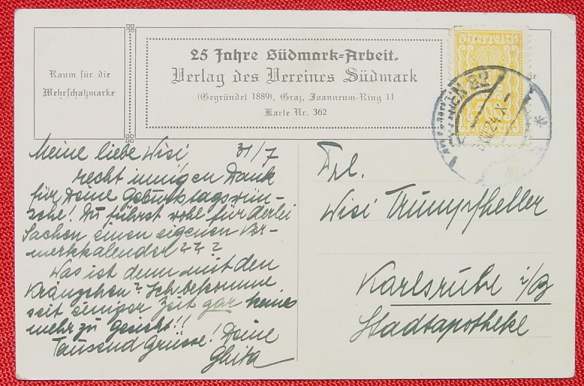 Raum für die
Wehrschatzmarke
25 Jahre Südmark-Arbeit.
Verlag des Vereines Südmark
(Gegründet 1889), Graz, Joanneum-Ring 11
Karte Nr. 362
Meine liebe Wisi 31/7
recht innigen Dank
für Deine Geburtstagswün-
sche! Du führst wohl für derlei
Sachen einen eigenen Vor-
merkkalender???
Was ist denn mit den
Kränzchen? Ich bekomme
seit einiger Zeit gar keines
mehr zu Gesicht!!
Tausend Grüsse! Deine
Ghita
Frl.
Wisi Trumpfheller
Karlsruhe i/B
Stadtapotheke
WIEN 82